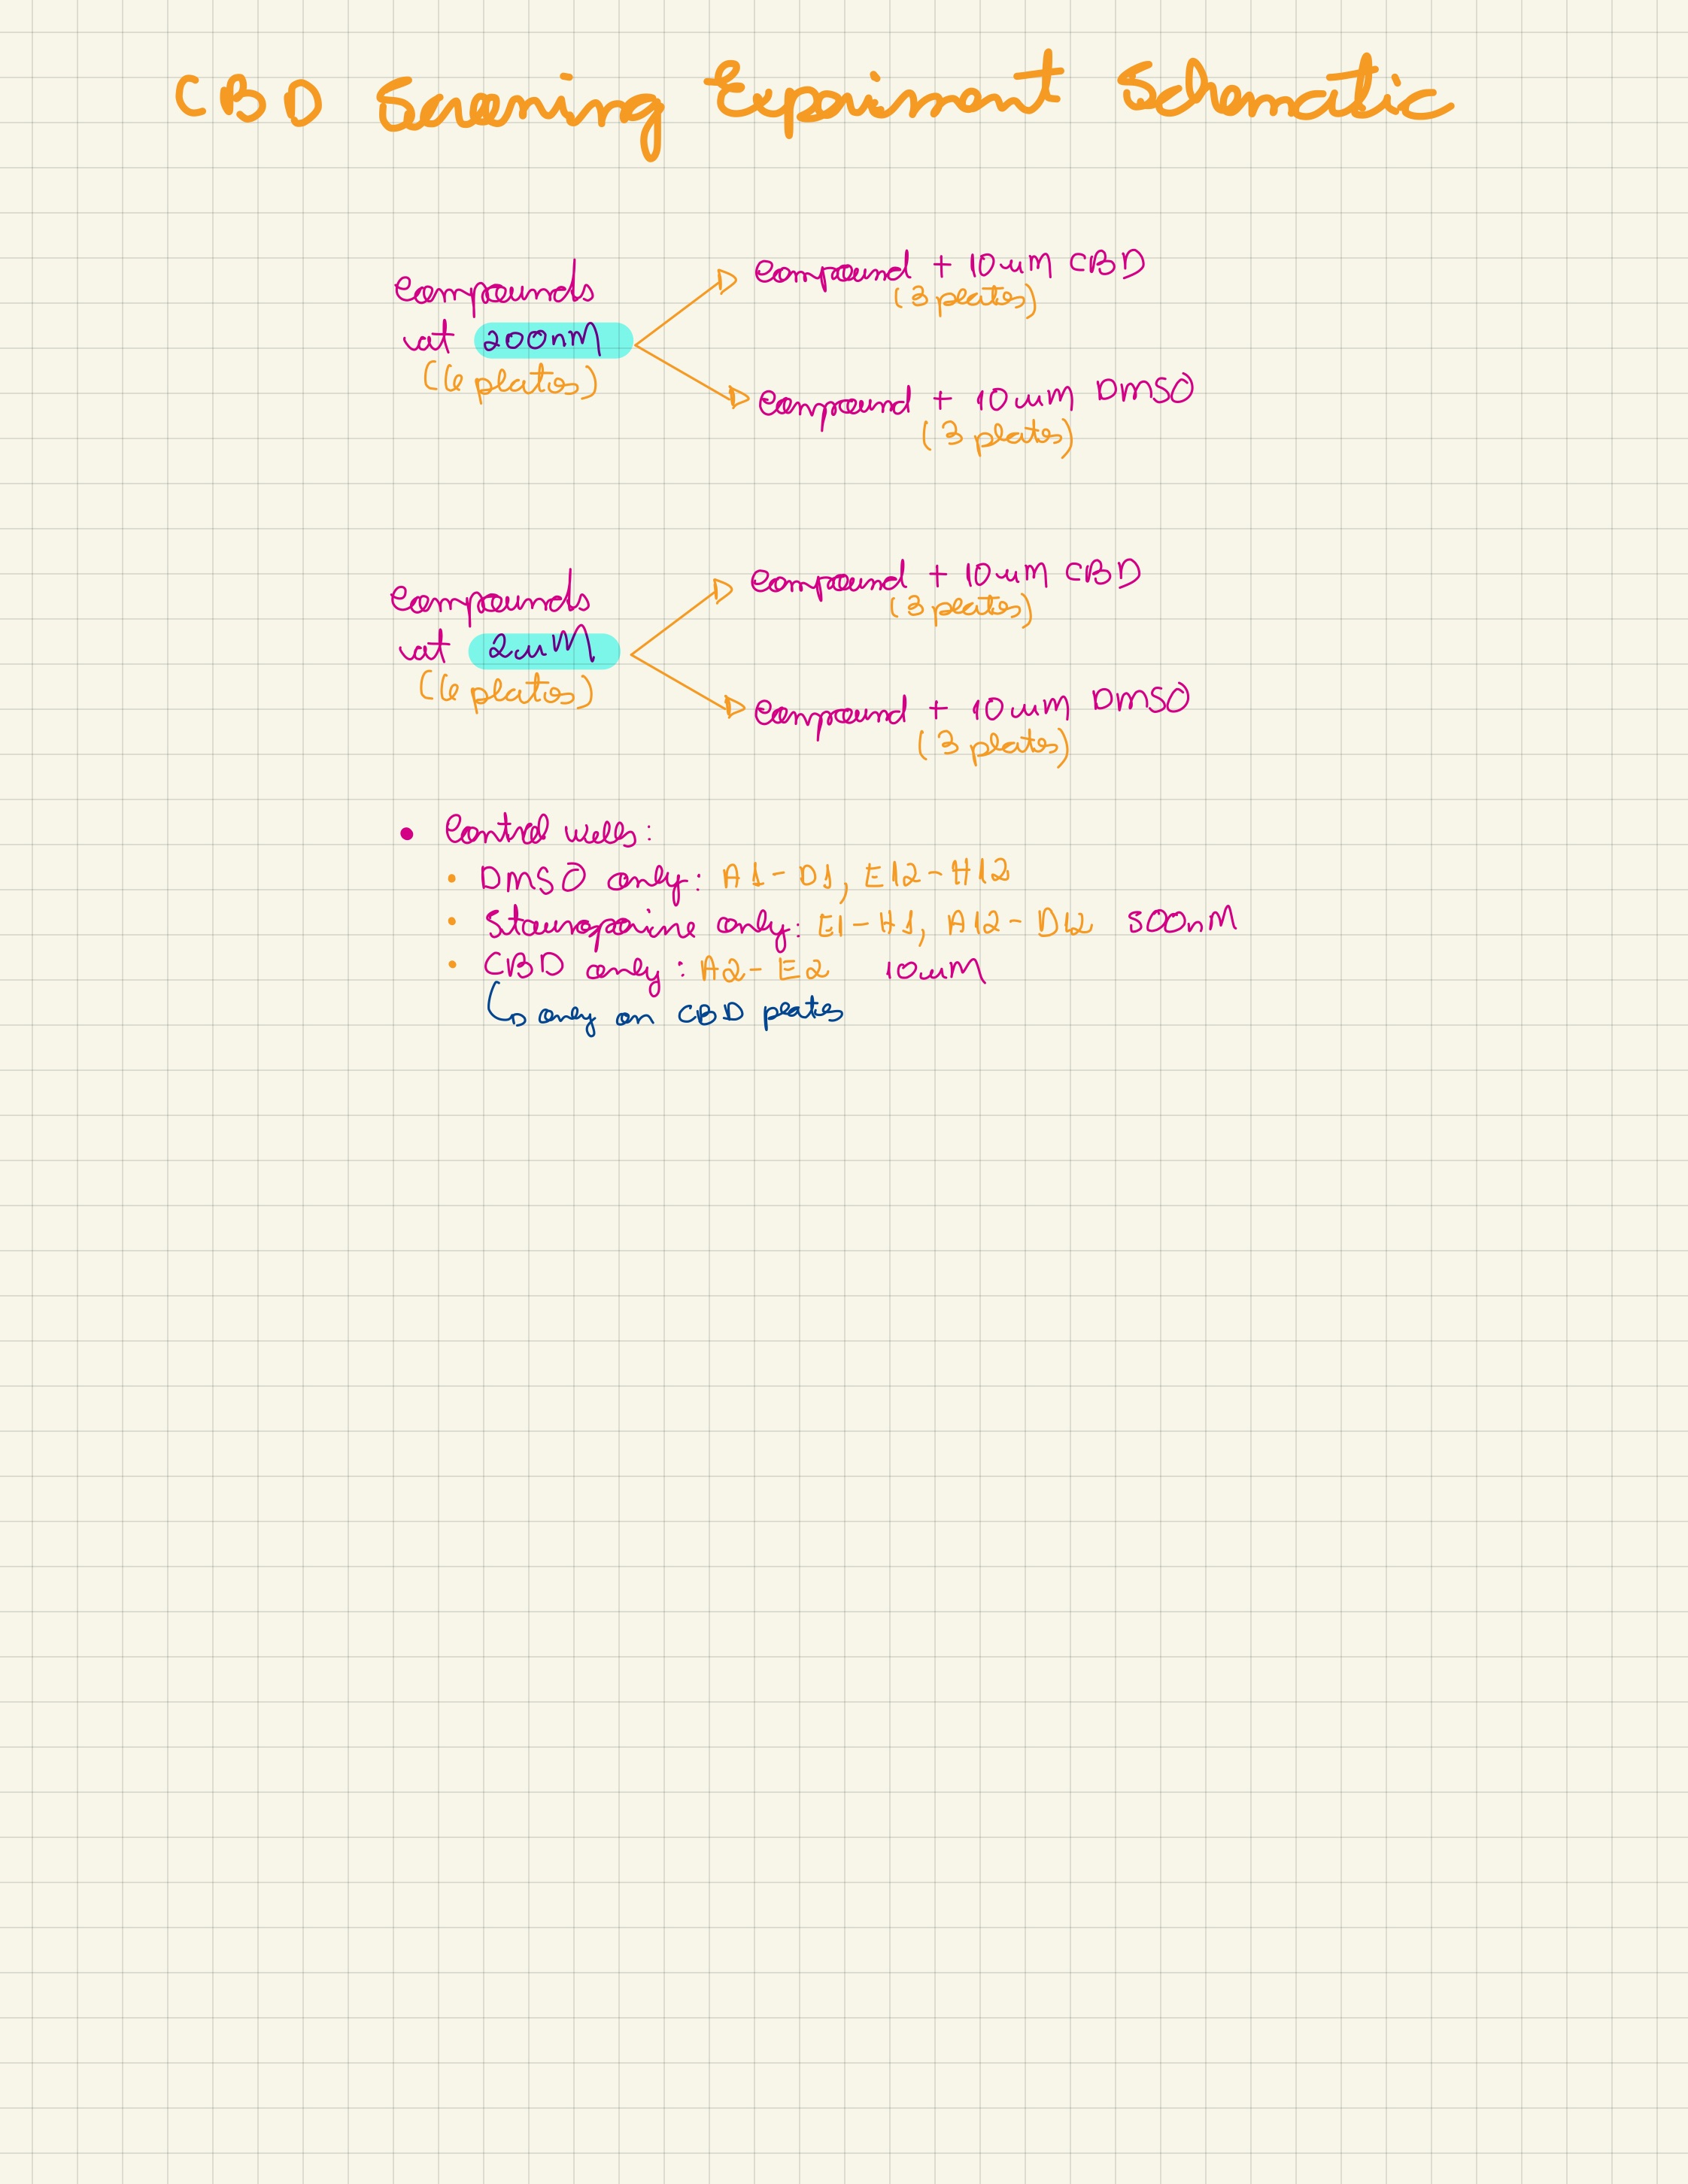 CBD Screening Experiment Schematic
Compounds
at 200nM
(6 plates)
Compound + 10uM CBD
(3 plates)
Compound + 10uM DMSO
(3 plates)
Compounds
at 2uM
(6 plates)
Compound + 10uM CBD
(3 plates)
Compound + 10uM DMSO
(3 plates)
• Control wells:
• DMSO only: A1-D1, E12-H12
• Stauroporine only: E1-H1, A12-D12 500nM
• CBD only: A2-E2 10uM
↳ only on CBD plates